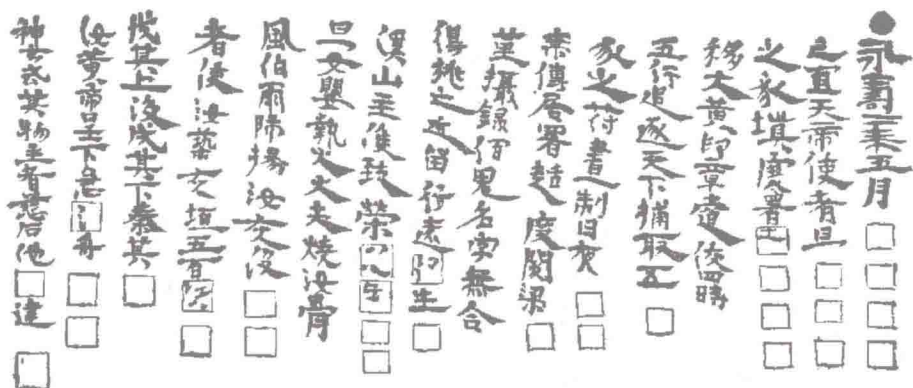 ●永壽二年五月□□□□
之直天帝使者旦□□□
之家填寒暑□□□□
移大黃印章遣佼四時
五行追逐天下捕取五□
豕之符書制日夜□□
乘傳居署越度閡梁□
堇攝錄佰鬼名字無合
得桃之近留行遠行生□
溟山主獲致榮□□□□
旦女嬰執火大夫燒汝骨
風伯雨師揚汝灰沒□□
者使汝築灰垣五百□□
戊其上沒戌其下秦其□
汝黃帝呈下急□□□
神玄武其物主者慈石佻□達□